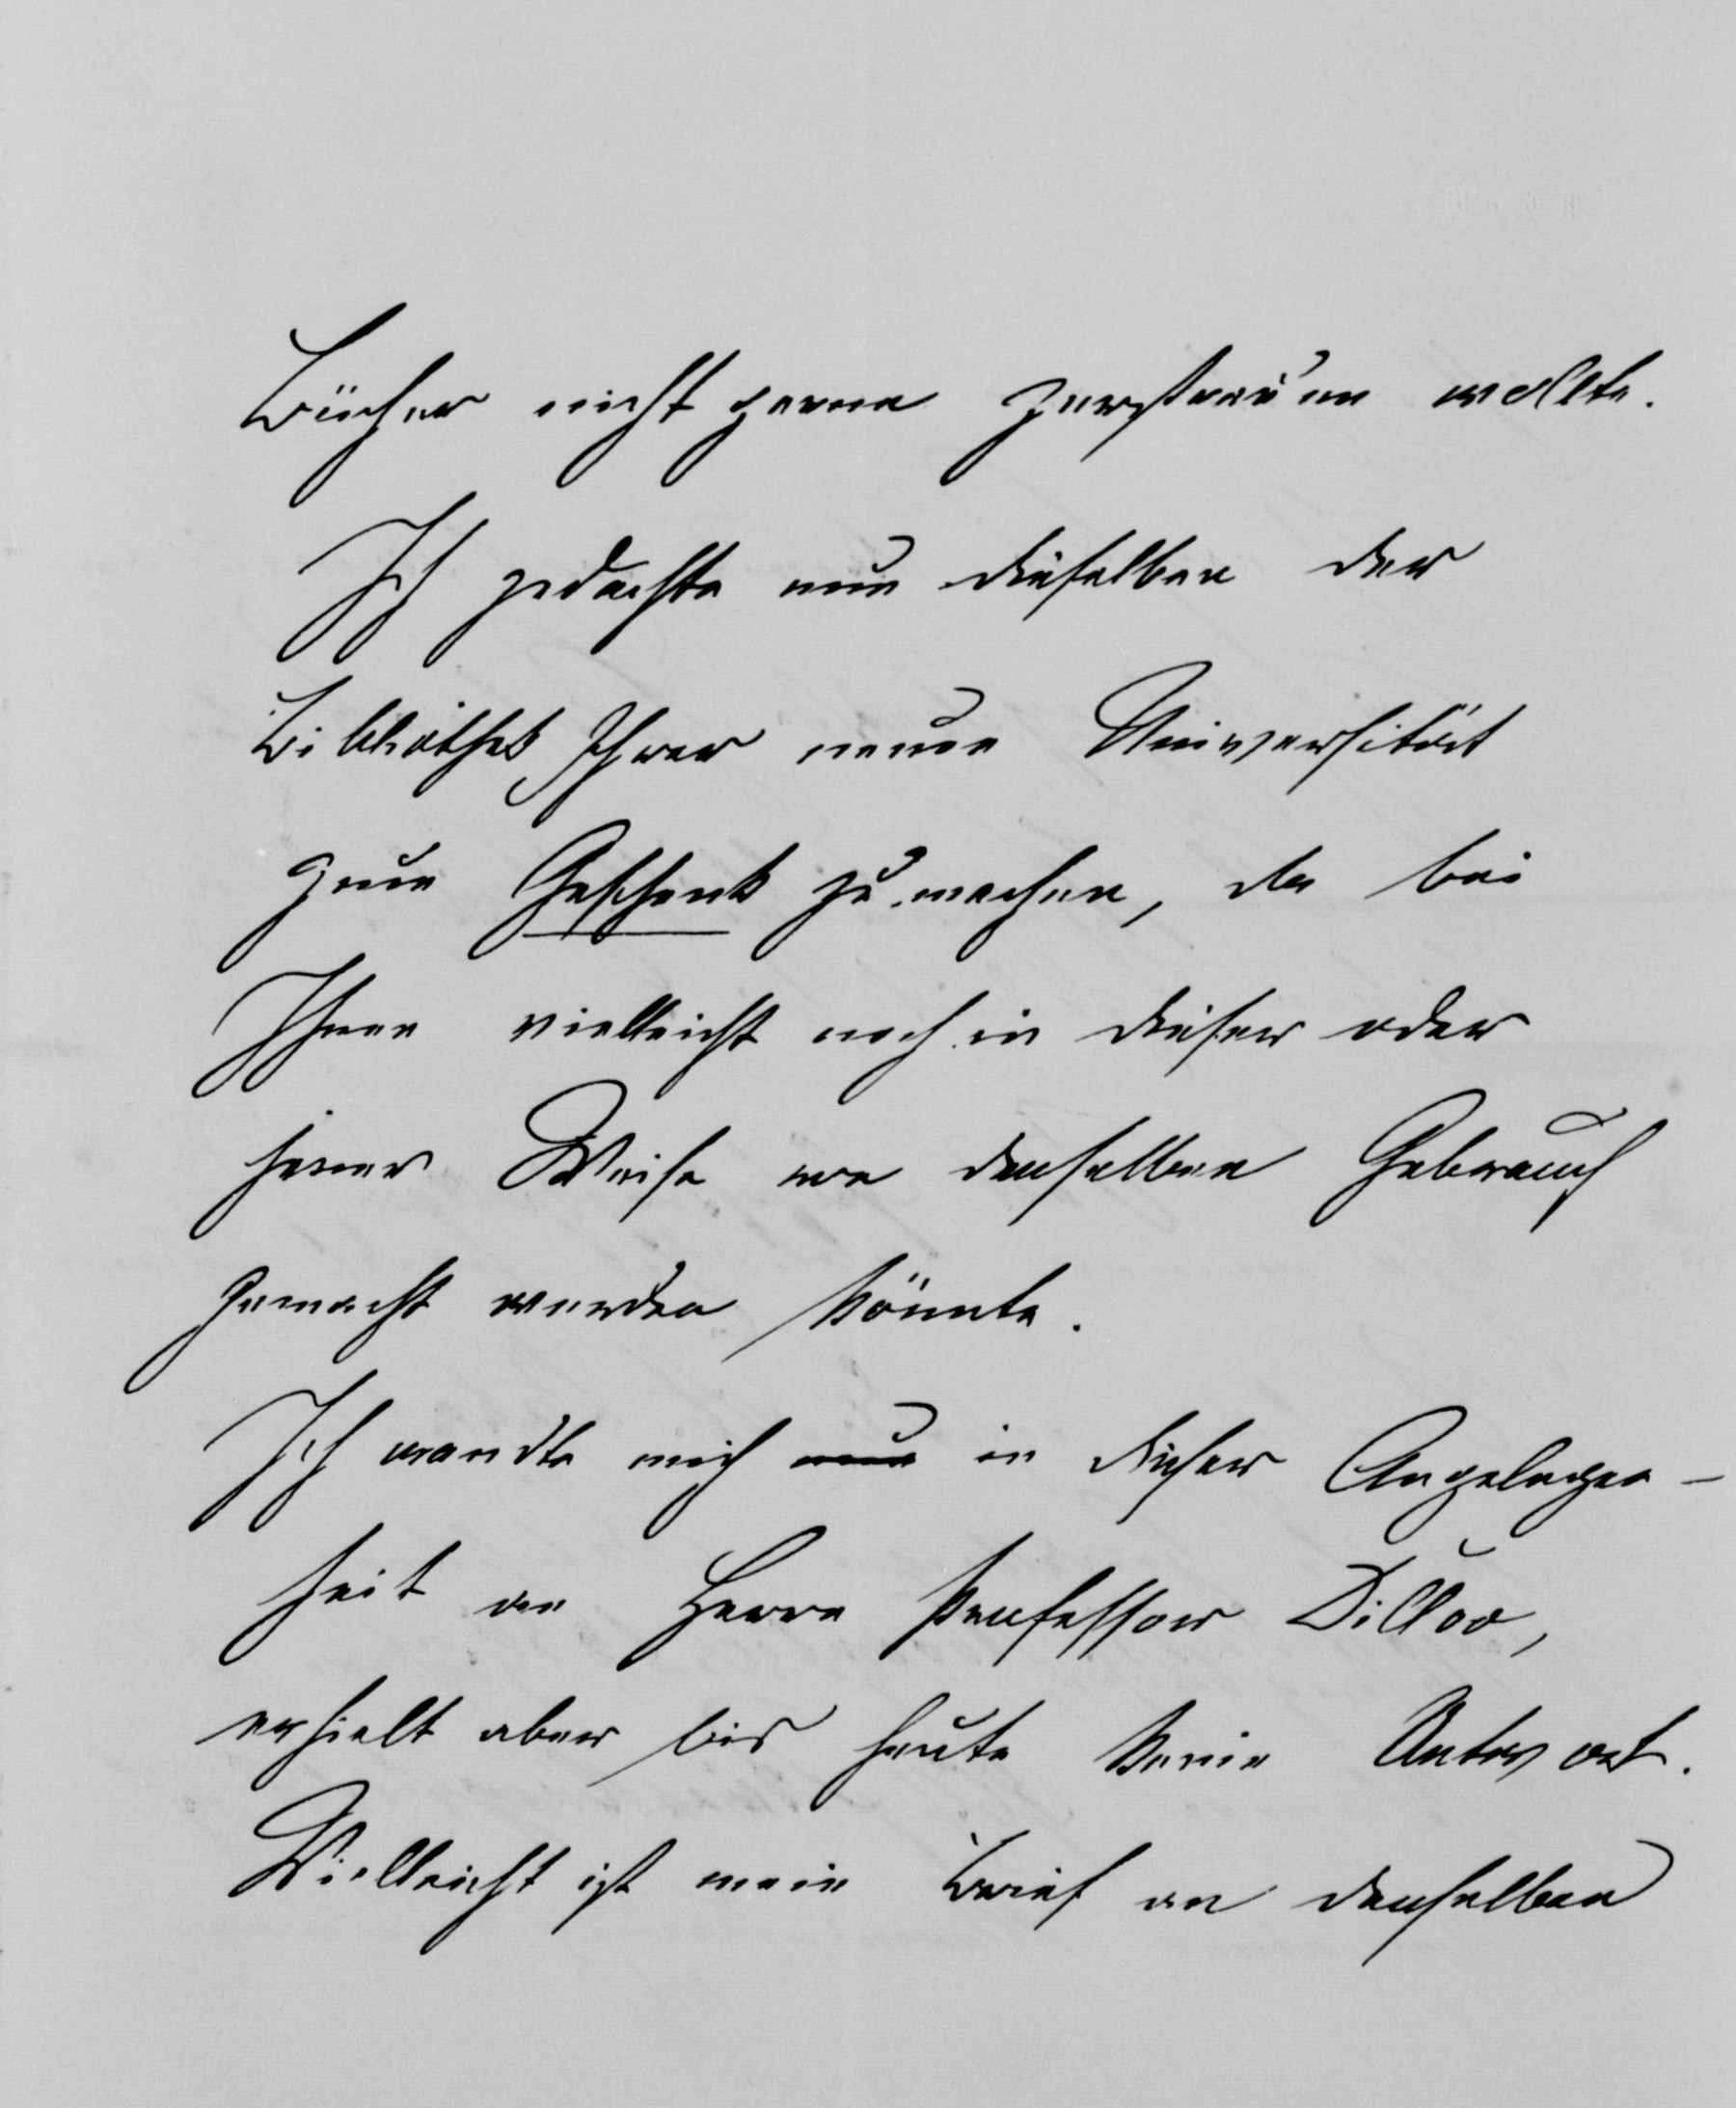 Bücher nicht gerne zerstreuen wollte.
Ich gedachte nun dieselben der
Bibliothek Ihrer neuen Universität
zum Geschenk zu machen, da bei
Ihnen vielleicht noch in dieser oder
jener Weise von denselben Gebrauch
gemacht werden könnte.
Ich wandte mich nun in dieser Angelegen-
heit an Herrn Professor Dilloo,
erhielt aber bis heute keine Antwort.
Vielleicht ist mein Brief an denselben